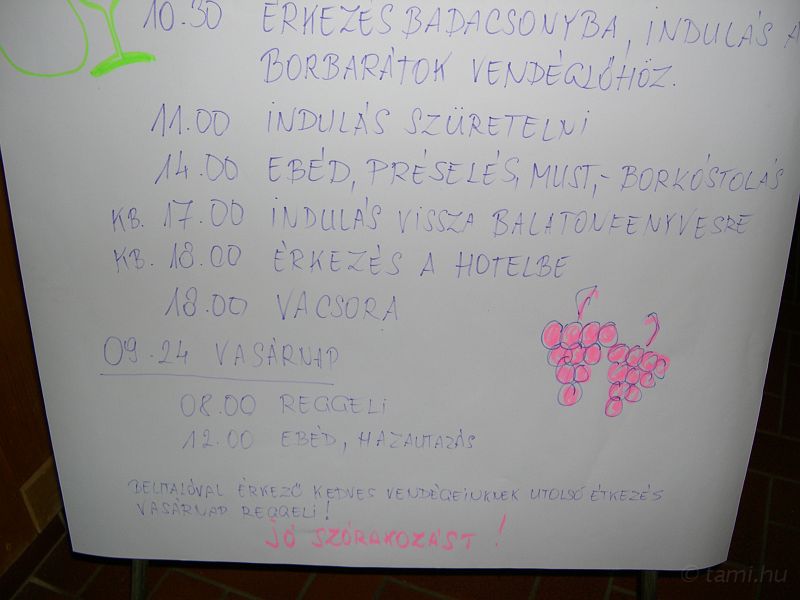 10.30 ÉRKEZÉS BADACSONYBA, INDULÁS A
BORBARÁTOK VENDÉGLŐHÖZ.
11.00 INDULÁS SZÜRETELNI
14.00 EBÉD, PRÉSELÉS, MUST,- BORKÓSTOLÁS
KB. 17.00 INDULÁS VISSZA BALATONFENYVESRE
KB. 18.00 ÉRKEZÉS A HOTELBE
18.00 VACSORA
09.24 VASÁRNAP
08.00 REGGELI
12.00 EBÉD, HAZAUTAZÁS
BEUTALÓVAL ÉRKEZŐ KEDVES VENDÉGEINKNEK UTOLSÓ ÉTKEZÉS
VASÁRNAP REGGELI!
JÓ SZÓRAKOZÁST!
© tami.hu